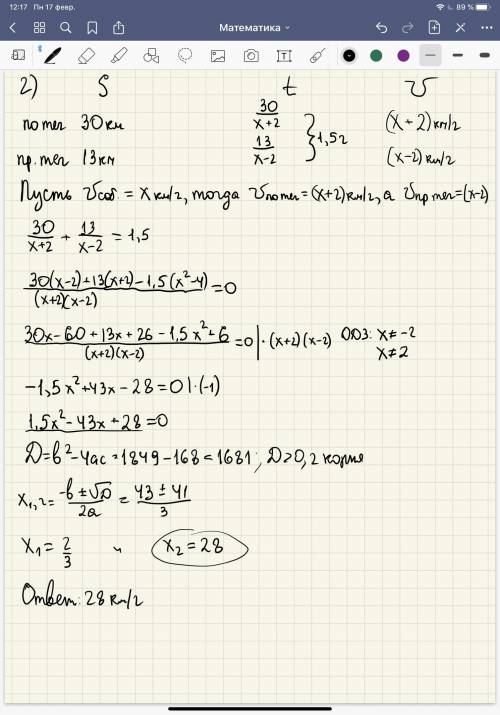 12:17 Пн 17 февр. 89 %
Математика
2) S t v
по теч 30 км 30/(x+2) (x+2) км/г
} 1,5 г
пр. теч 13 км 13/(x-2) (x-2) км/г
Пусть Vсоб. = x км/г, тогда Vпо теч = (x+2) км/г, а Vпр теч = (x-2)
30/(x+2) + 13/(x-2) = 1,5
(30(x-2)+13(x+2)-1,5(x²-4))/((x+2)(x-2)) = 0
(30x-60+13x+26-1,5x²+6)/((x+2)(x-2)) = 0 |·(x+2)(x-2) ОДЗ: x≠-2
x≠2
-1,5x²+43x-28=0 |·(-1)
1,5x²-43x+28=0
D=b²-4ac=1849-168=1681; D>0, 2 корня
x₁,₂ = (-b±√D)/2a = (43±41)/3
x₁ = 2/3 и x₂ = 28
Ответ: 28 км/г